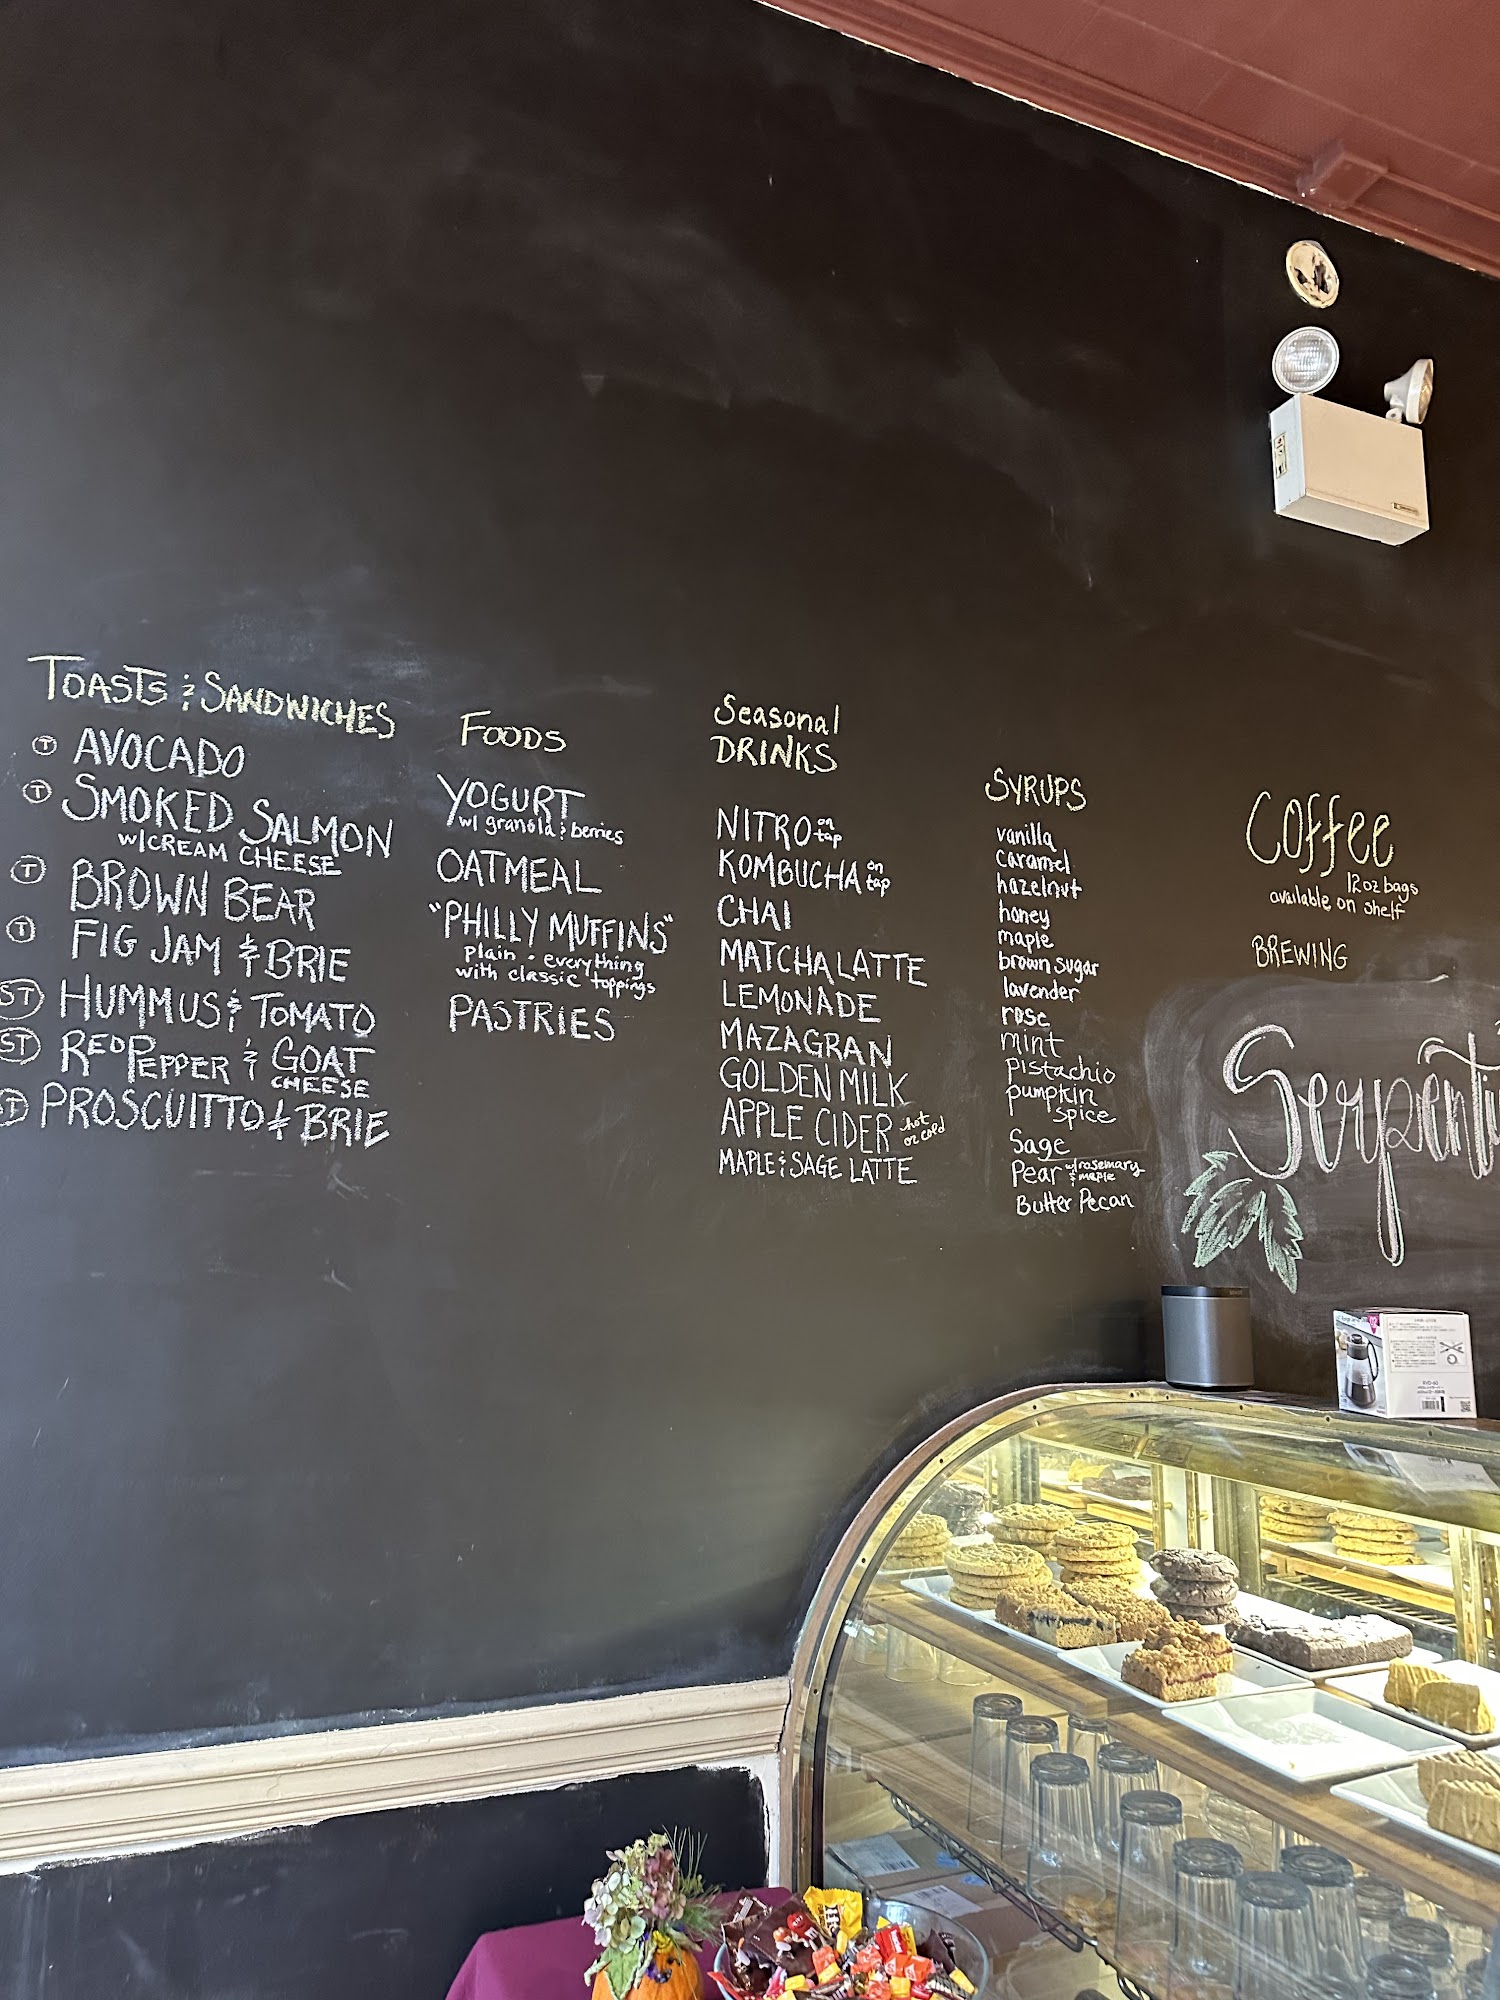 TOASTS & SANDWICHES
T AVOCADO
T SMOKED SALMON
w/CREAM CHEESE
T BROWN BEAR
T FIG JAM & BRIE
ST HUMMUS & TOMATO
ST RED PEPPER & GOAT
CHEESE
ST PROSCUITTO & BRIE
FOODS
YOGURT
w/ granola & berries
OATMEAL
"PHILLY MUFFINS"
plain · everything
with classic toppings
PASTRIES
Seasonal
DRINKS
NITRO on tap
KOMBUCHA on tap
CHAI
MATCHA LATTE
LEMONADE
MAZAGRAN
GOLDEN MILK
APPLE CIDER hot or cold
MAPLE & SAGE LATTE
SYRUPS
vanilla
caramel
hazelnut
honey
maple
brown sugar
lavender
rose
mint
pistachio
pumpkin
spice
Sage
Pear w/rosemary & maple
Butter Pecan
Coffee
12oz bags
available on shelf
BREWING
Serpenti